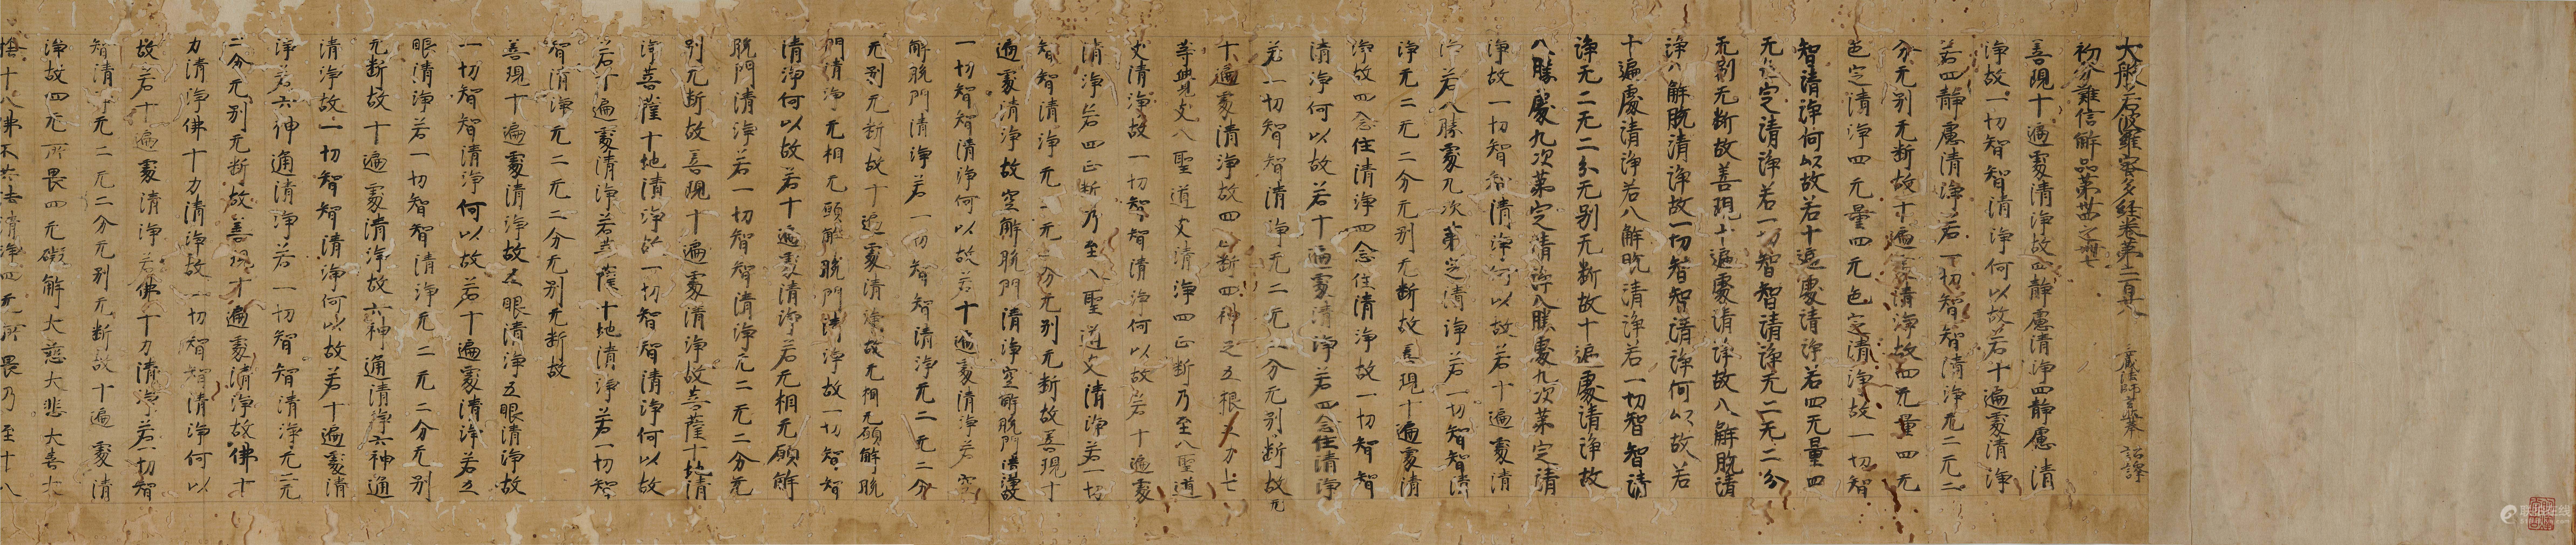 大般若波羅蜜多經卷第二百六
初分難信解品第卅四之 三藏法師玄奘 詔譯
善現十遍處清淨故四靜慮清淨四靜慮清
淨故一切智智清淨何以故若十遍處清淨
若四靜慮清淨若一切智智清淨无二无二
分无別无斷故十遍處清淨故四无量四无
色定清淨四无量四无色定清淨故一切智
智清淨何以故若十遍處清淨若四无量四
无色定清淨若一切智智清淨无二无二分
无別无斷故善現十遍處清淨故八解脫清
淨八解脫清淨故一切智智清淨何以故若
十遍處清淨若八解脫清淨若一切智智清
淨无二无二分无別无斷故十遍處清淨故
八勝處九次第定清淨八勝處九次第定清
淨故一切智智清淨何以故若十遍處清
淨若八勝處九次第定清淨若一切智智清
淨无二无二分无別无斷故善現十遍處清
淨故四念住清淨四念住清淨故一切智智
清淨何以故若十遍處清淨若四念住清淨
若一切智智清淨无二无二分无別无斷故无
十遍處清淨故四正斷四神足五根五力七
等覺支八聖道支清淨四正斷乃至八聖道
支清淨故一切智智清淨何以故若十遍處
清淨若四正斷乃至八聖道支清淨若一切
智智清淨无二无二分无別无斷故善現十
遍處清淨故空解脫門清淨空解脫門清淨故
一切智智清淨何以故若十遍處清淨若空
解脫門清淨若一切智智清淨无二无二分
无別无斷故十遍處清淨故无相无願解脫
門清淨无相无願解脫門清淨故一切智智
清淨何以故若十遍處清淨若无相无願解
脫門清淨若一切智智清淨无二无二分无
別无斷故善現十遍處清淨故菩薩十地清
淨菩薩十地清淨故一切智智清淨何以故
若十遍處清淨若菩薩十地清淨若一切智
智清淨无二无二分无別无斷故
善現十遍處清淨故五眼清淨五眼清淨故
一切智智清淨何以故若十遍處清淨若五
眼清淨若一切智智清淨无二无二分无別
无斷故十遍處清淨故六神通清淨六神通
清淨故一切智智清淨何以故若十遍處清
淨若六神通清淨若一切智智清淨无二无
二分无別无斷故善現十遍處清淨故佛十
力清淨佛十力清淨故一切智智清淨何以
故若十遍處清淨若佛十力清淨若一切智
智清淨无二无二分无別无斷故十遍處清
淨故四无所畏四无礙解大慈大悲大喜大
捨十八佛不共法清淨四无所畏乃至十八